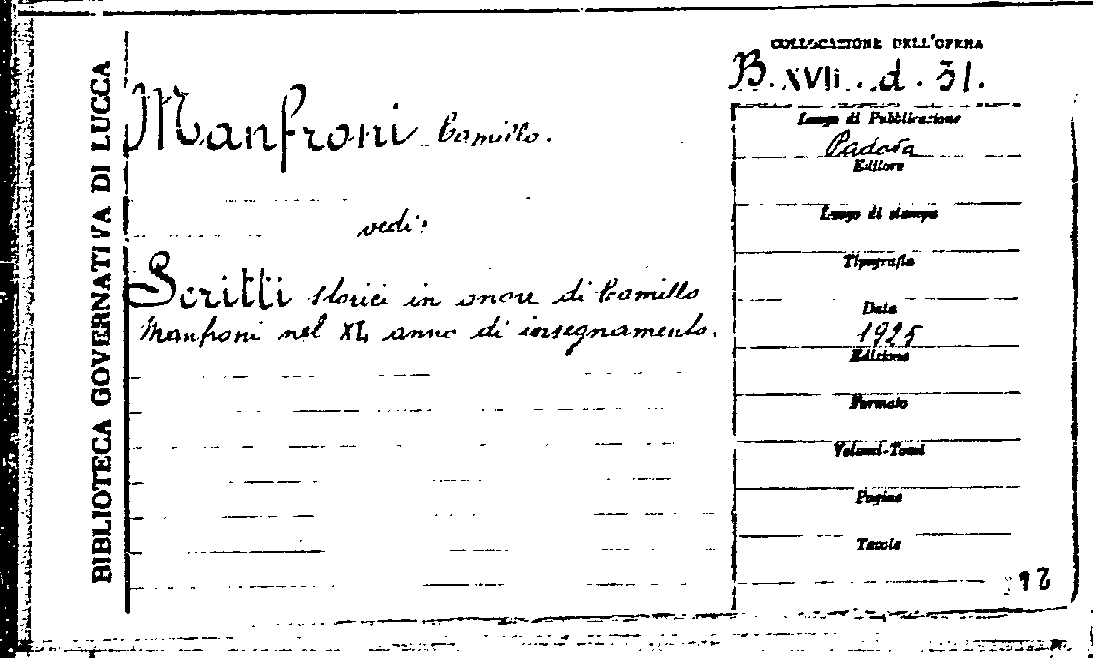 BIBLIOTECA GOVERNATIVA DI LUCCA
Manfroni Camillo.
vedi:
Scritti storici in onore di Camillo
Manfroni nel XL anno di insegnamento.
COLLOCAZIONE DELL'OPERA
B. XVII. d. 31.
Luogo di Pubblicazione
Padova
Editore
Luogo di stampa
Tipografia
Data
1925
Edizione
Formato
Volumi-Tomi
Pagine
Tavole